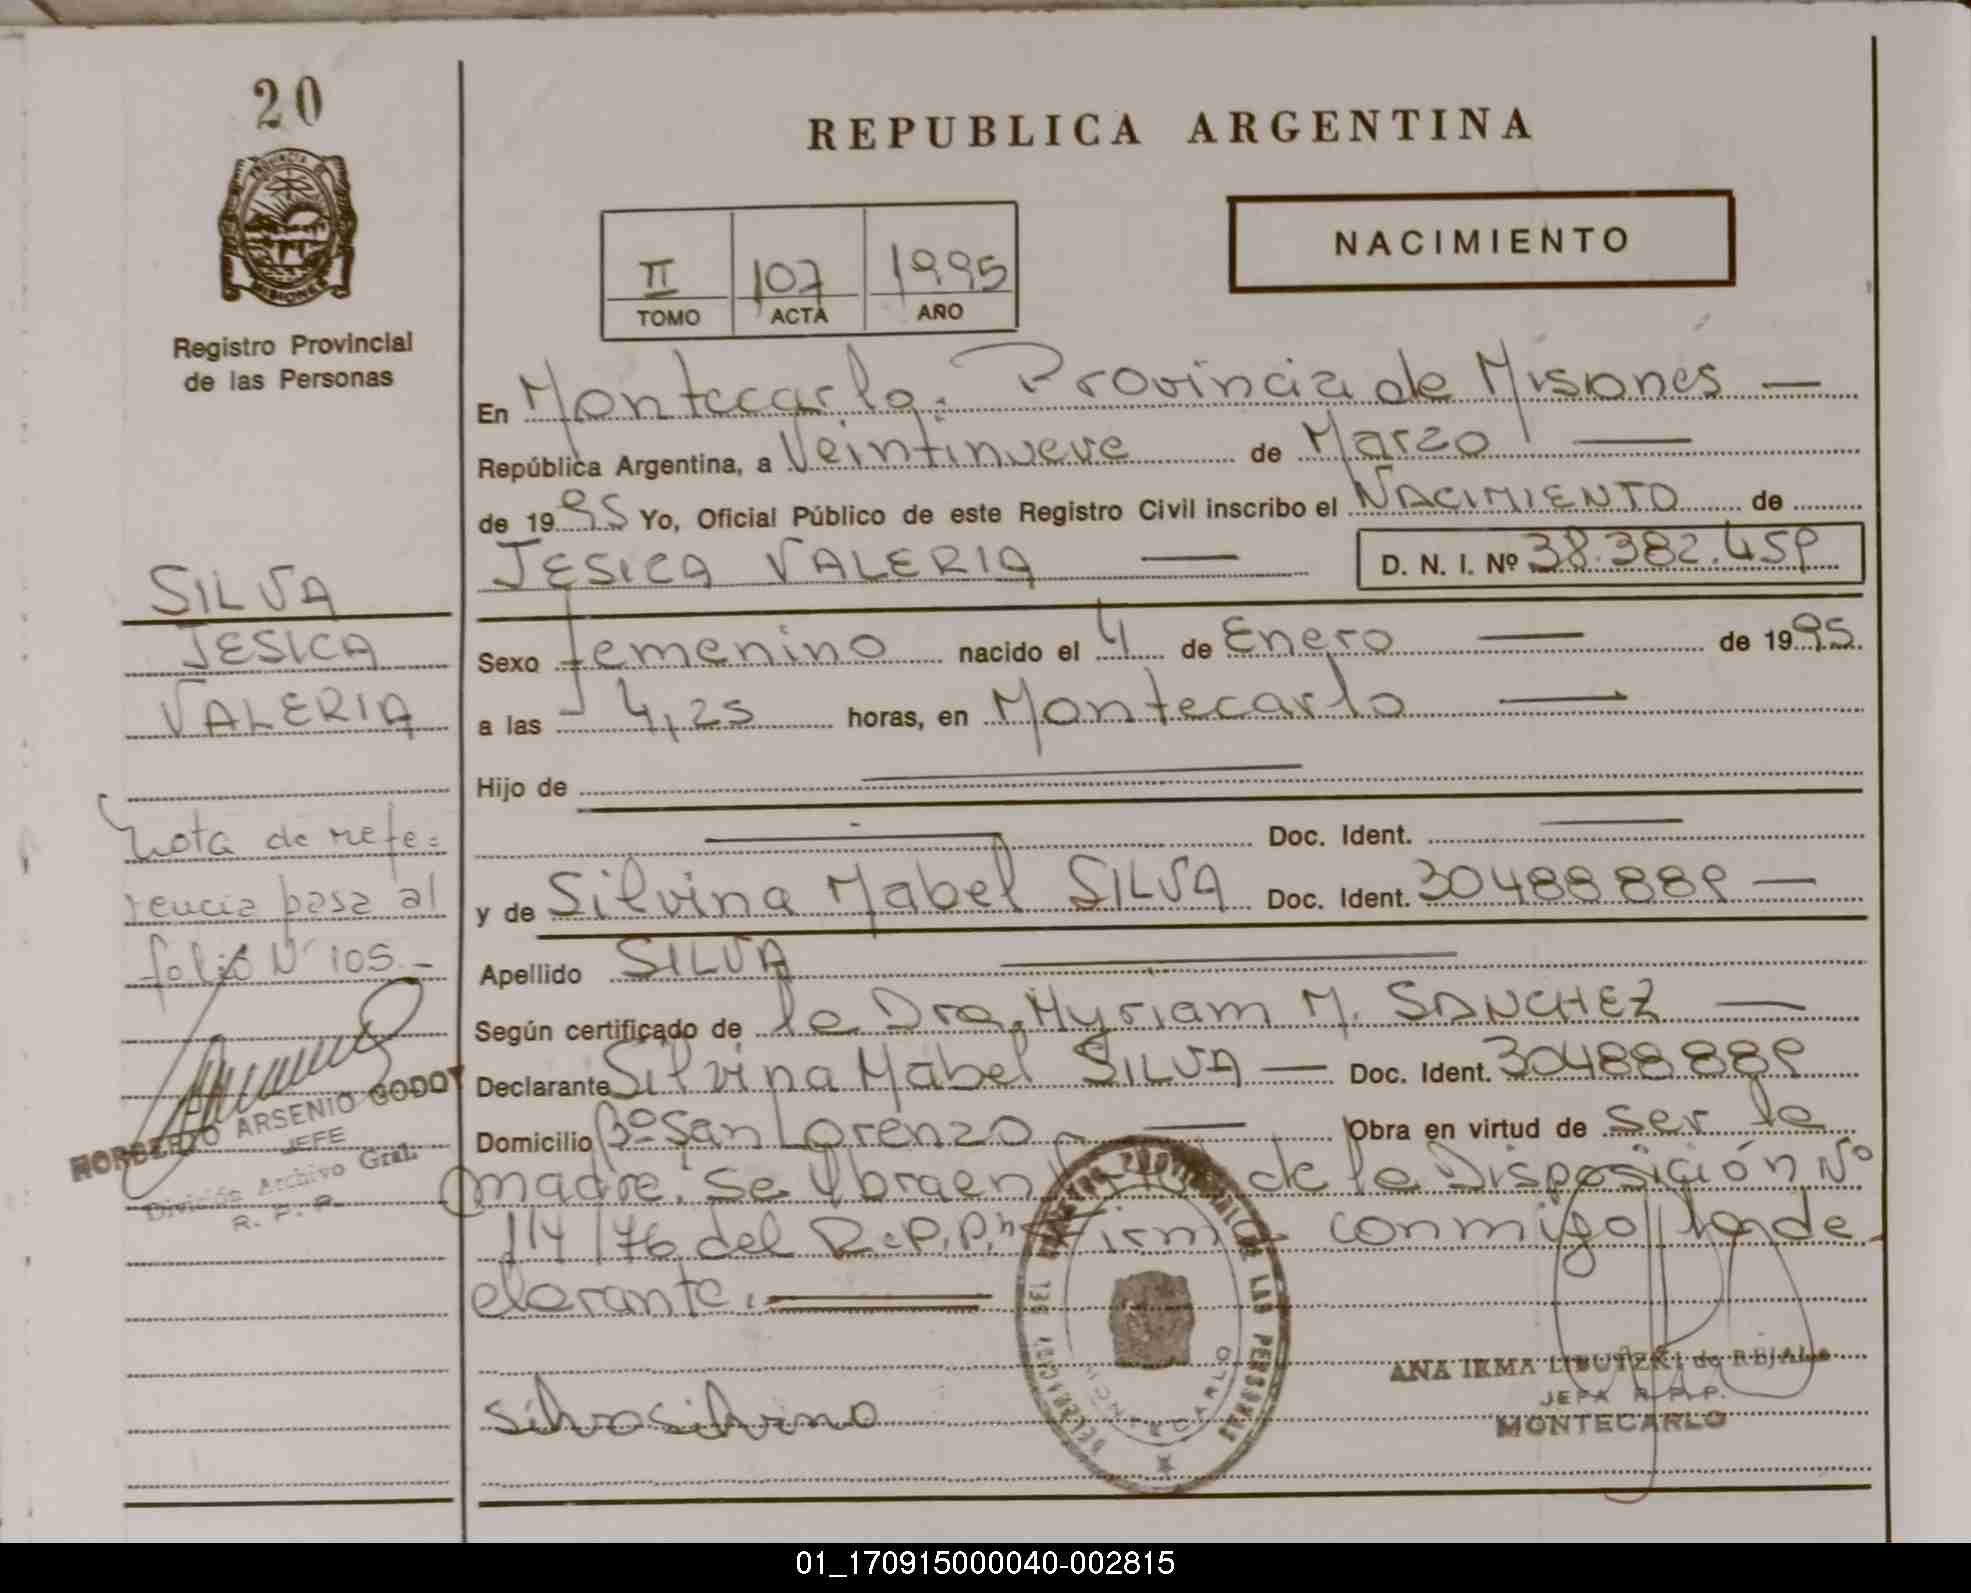 20
PROVINCIA DE
MISIONES
Registro Provincial
de las Personas
SILVA
JESICA
VALERIA
Nota de refe=
rencia pasa al
folio Nº 105.-
NORBERTO ARSENIO GODOY
JEFE
División Archivo Gral.
R. P. P.
REPUBLICA ARGENTINA
NACIMIENTO
II 107 1995
TOMO ACTA AÑO
En Montecarlo. Provincia de Misiones —
República Argentina, a Veintinueve de Marzo —
de 1995 Yo, Oficial Público de este Registro Civil inscribo el NACIMIENTO de
JESICA VALERIA — D. N. I. Nº 38.382.459
Sexo femenino nacido el 4 de Enero — de 1995.
a las 4,25 horas, en Montecarlo —
Hijo de —
— Doc. Ident. —
y de Silvina Mabel SILVA Doc. Ident. 30488889 —
Apellido SILVA —
Según certificado de la Dra. Myriam M. SANCHEZ —
Declarante Silvina Mabel SILVA — Doc. Ident. 30488889
Domicilio Bº San Lorenzo — Obra en virtud de ser la
madre. Se labra en de la Disposición Nº
114/76 del R.P.P. Firma conmigo la de
clarante.
Silva Silvina
DELEGACION DEL REGISTRO PROVINCIAL DE LAS PERSONAS
MONTECARLO
ANA IRMA LIBUTZKI de
JEFA R. P. P.
MONTECARLO
01_170915000040-002815